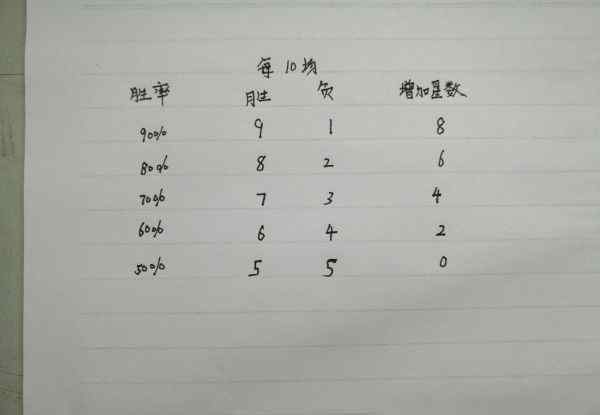 每10场
胜率 胜 负 增加星数
90% 9 1 8
80% 8 2 6
70% 7 3 4
60% 6 4 2
50% 5 5 0